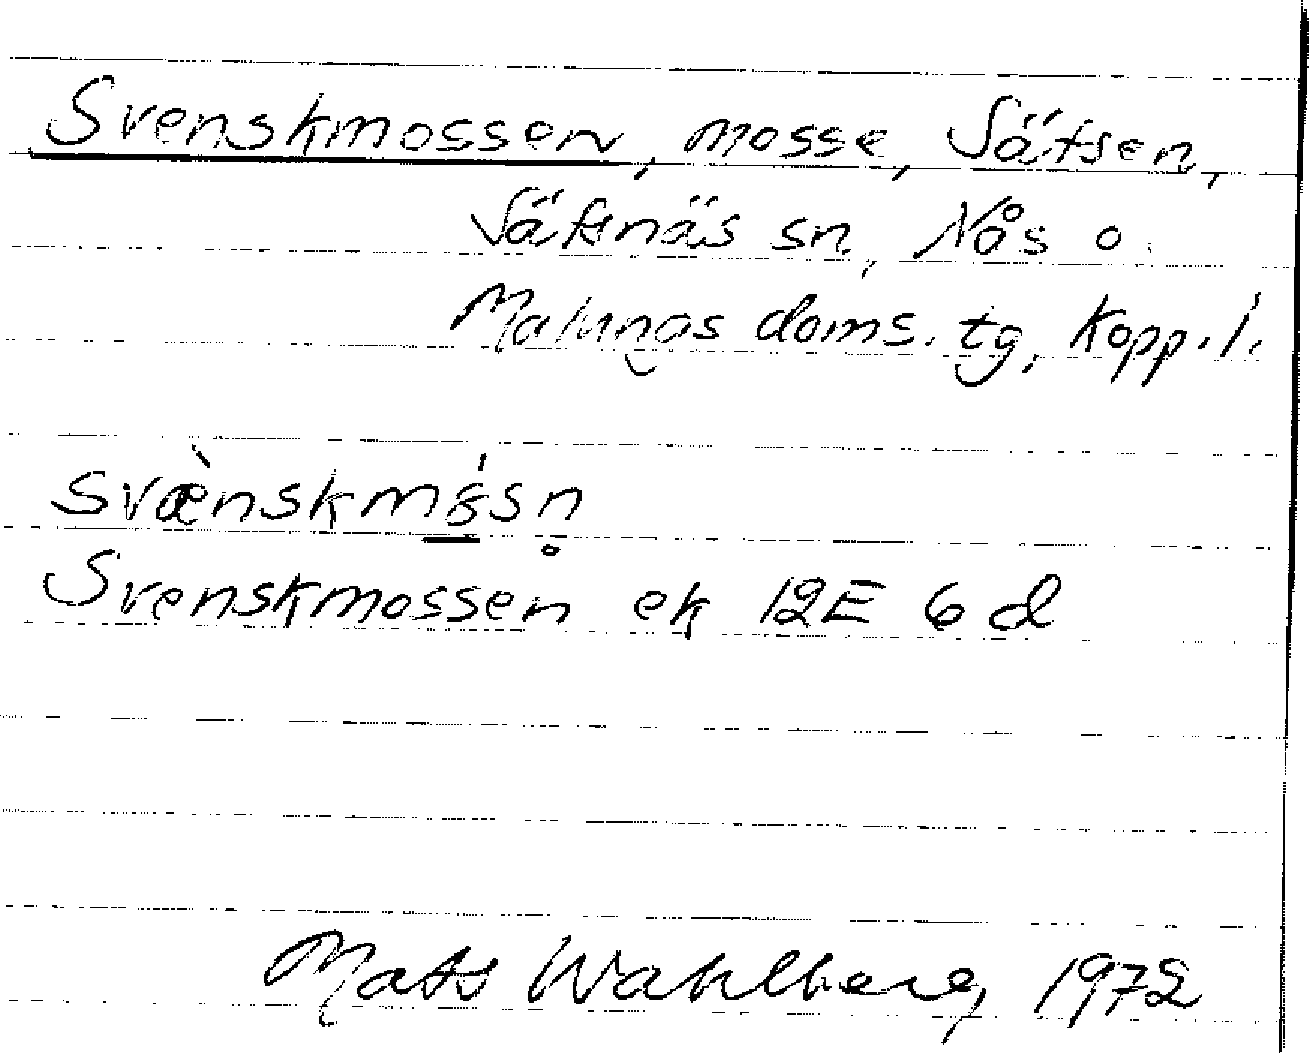 Svenskmossen, mosse, Sätsen,
Säfsnäs sn, Nås o.
Malungs doms. tg, Kopp. l.
Svenskmossen ek 12E 6d
Mats Wahlberg 1972